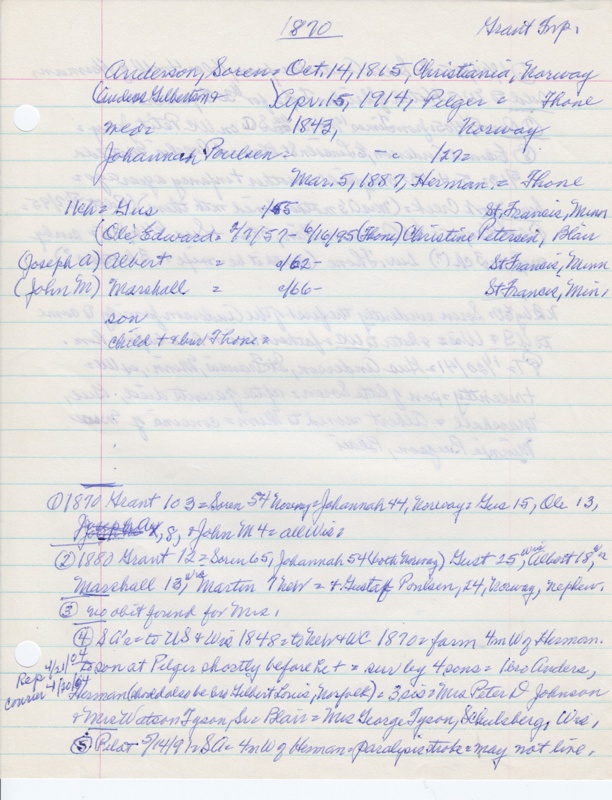 1870 Grant Twp.
Anderson, Soren = Oct. 14, 1815, Christiania, Norway
(Anders Gilbertson + ) Apr. 15, 1914, Pilger = Thone
near 1843, Norway
Johannah Poulsen = - c 1827 =
Mar. 5, 1887, Herman, = Thone
11ch = Gus c/55 St. Francis, Minn
(Ole Edward = 2/7/57 - 6/16/95 (Thone) Christine Petersen, Blair
(Joseph A) Albert = c/62 - St. Francis, Minn
(John M) Marshall = c/66 - St Francis, Min,
son
child + + bur Thone =
① 1870 Grant 103 = Soren 54 Norway = Johannah 44, Norway = Gus 15, Ole 13,
Joseph A, 8, + John M 4 = all Wis =
② 1880 Grant 12 = Soren 65, Johannah 54 (both Norway) Gust 25, Wis, Albert 18, Wis
Marshall 13, Wis, Martin 7 New = + Gustaf Poulsen, 24, Norway, nephew.
③ no obit found for Mrs.
④ SA's = to US + Wis 1848 = to New + WC 1870 = farm 4m W of Herman.
Rep 4/21/04 = son at Pilger shortly before he + = sur by 4 sons = 1 bro Anders,
Courier 4/30/04 Herman (checkdales be bro Gilbert Louis, Norfolk) = 3 sis = Mrs Peter D Johnson
+ Mrs Watson Tyson, Sr = Blair = Mrs George Tyson, Schulsberg, Wis,
⑤ Pilot 5/14/91 = SA = 4m W of Herman = paralysis stroke = may not live,